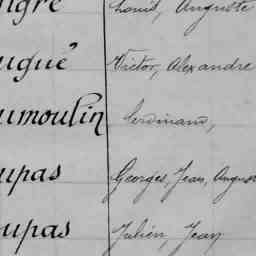 igre Louis, Auguste
ugué Victor, Alexandre
umoulin Ferdinand,
upas Georges, Jean, August
upas Julien, Jean